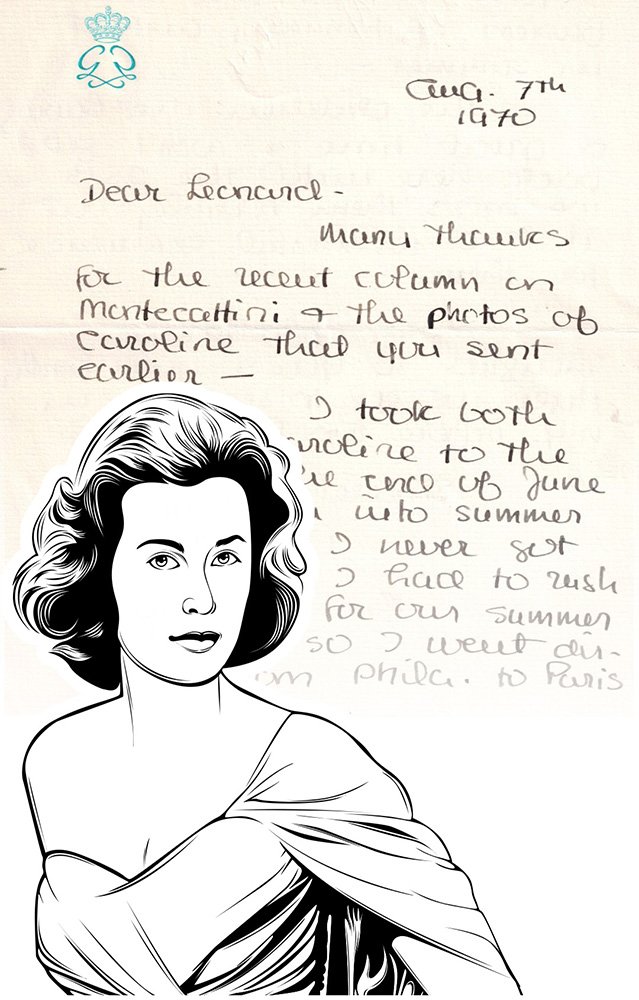 Aug. 7th
1970
Dear Leonard -
Many thanks
for the recent column on
Montecattini & the photos of
Caroline that you sent
earlier —
I took both
aroline to the
he end of June
into summer
I never got
I had to rush
for our summer
so I went dir-
om Phila. to Paris